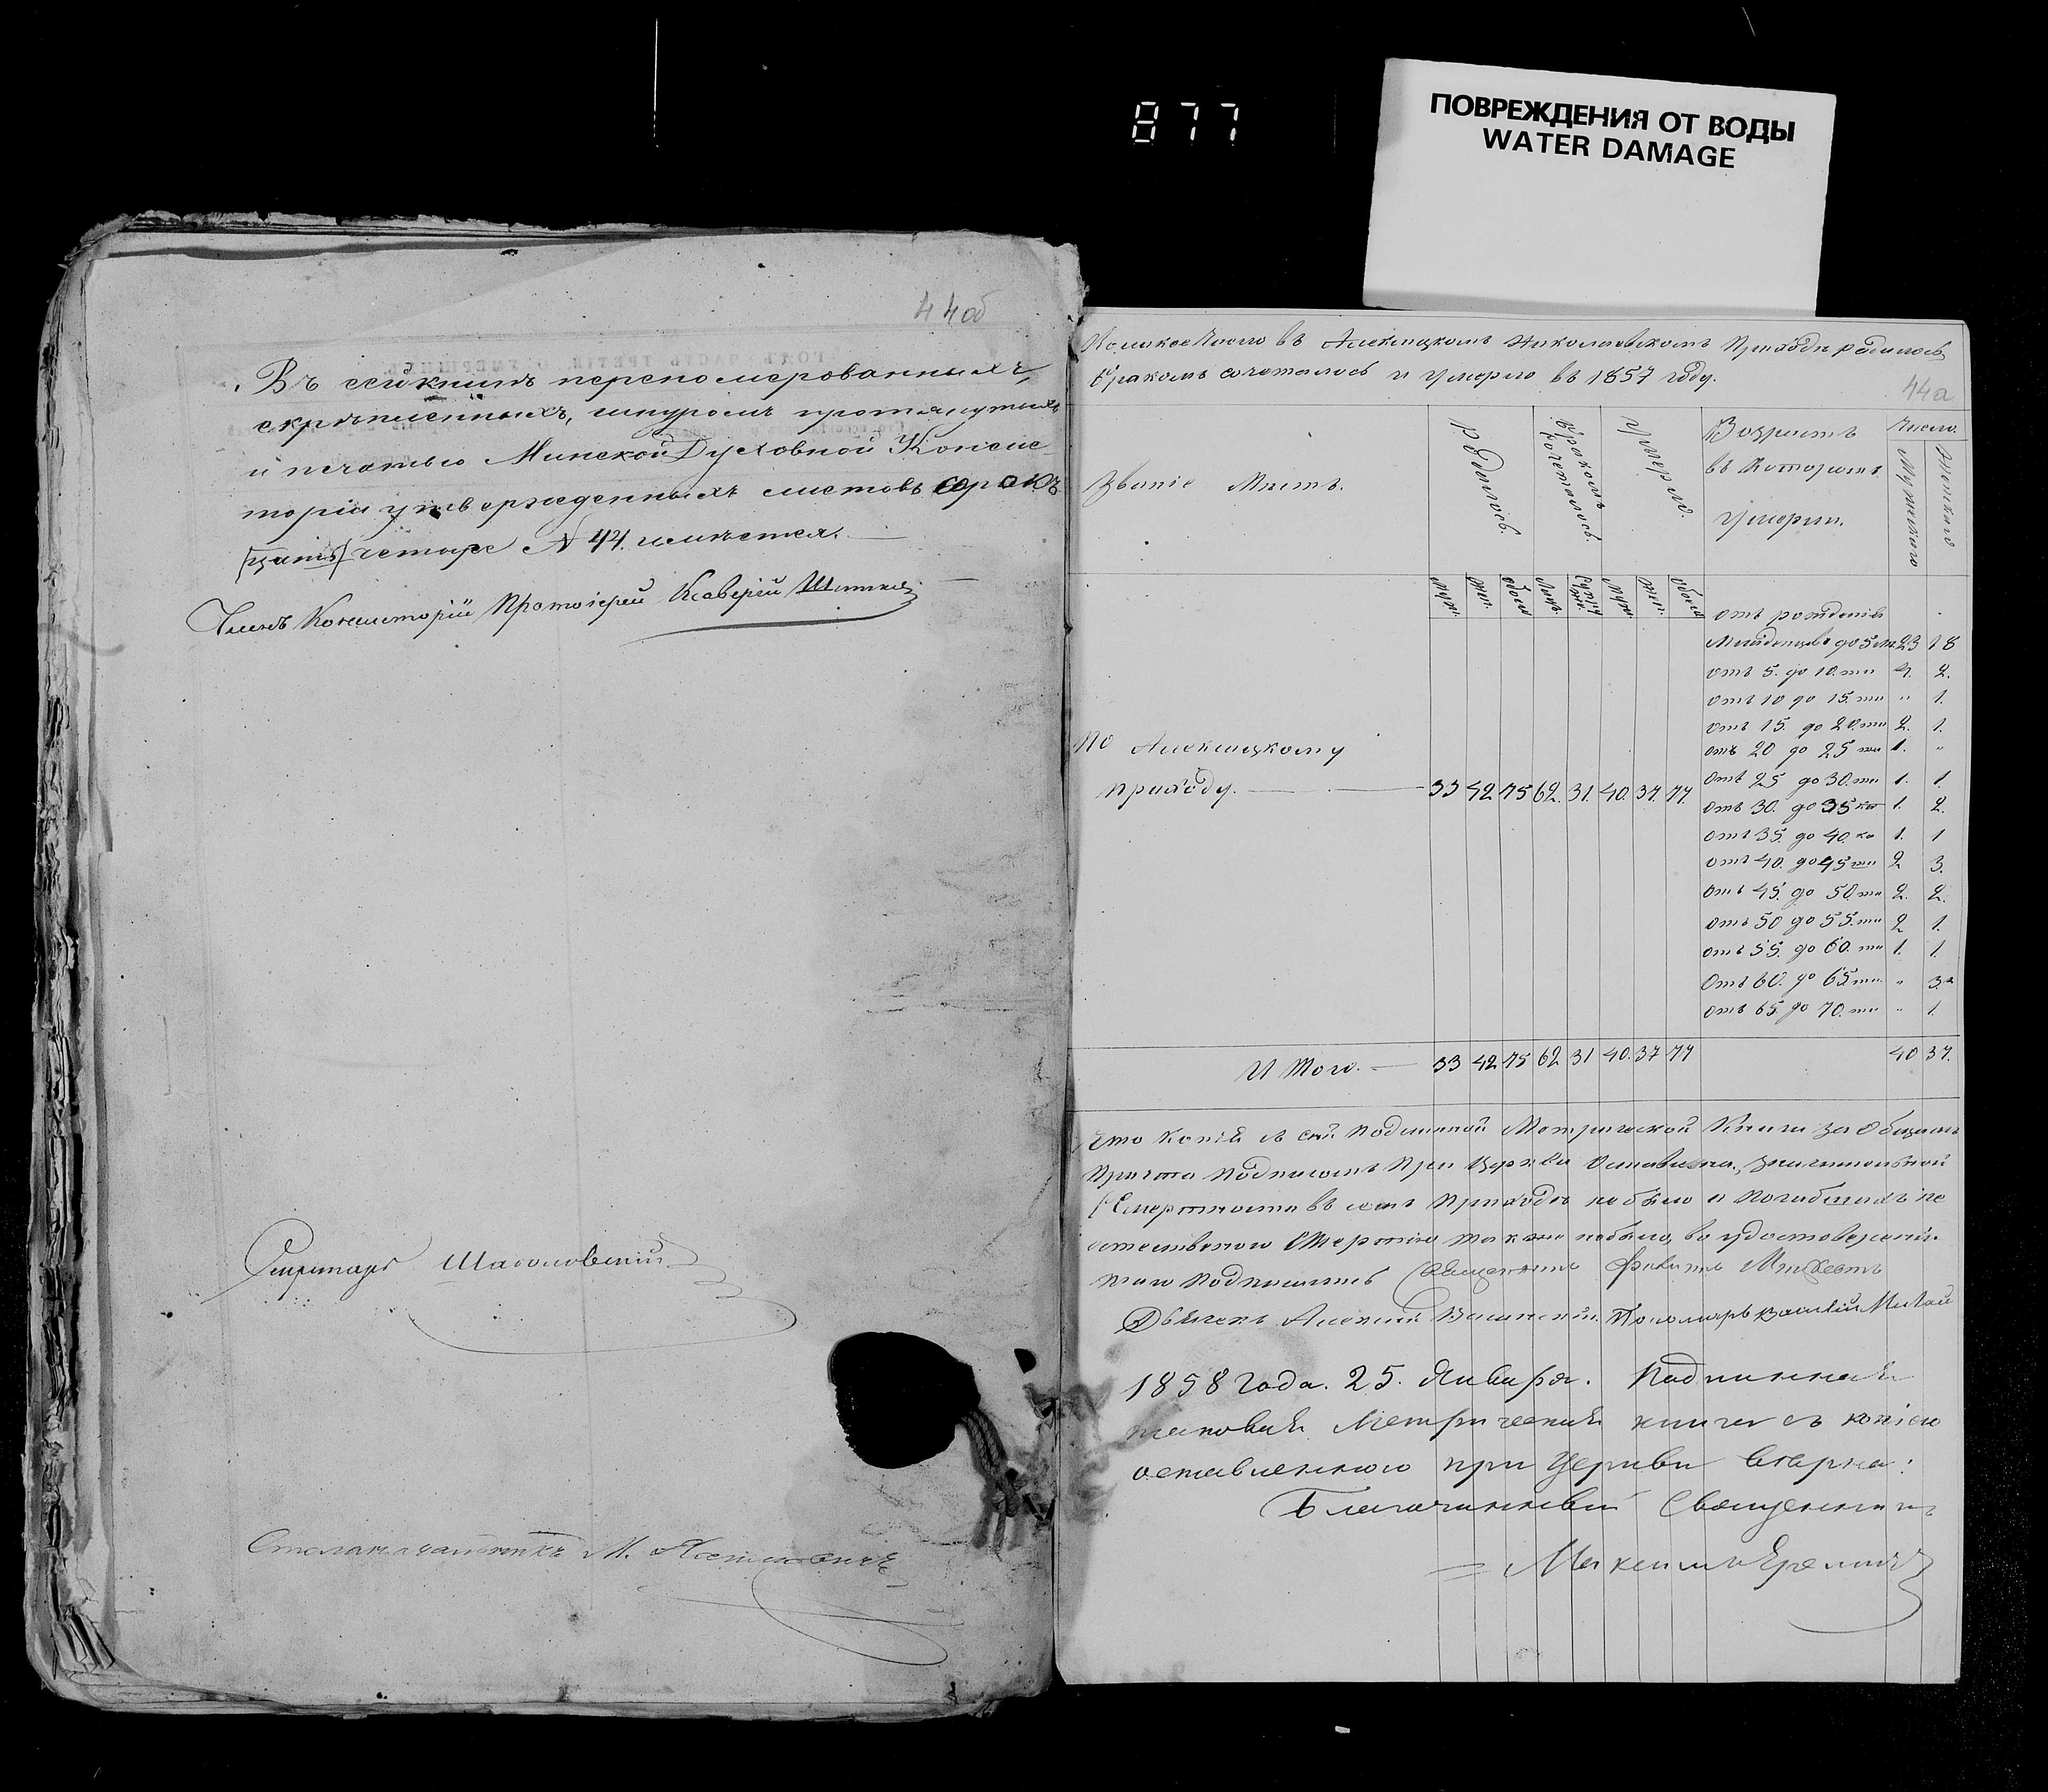 877
ПОВРЕЖДЕНИЯ ОТ ВОДЫ
WATER DAMAGE
44об
Въ сей книгѣ перепомерованныхъ,
скрѣпленныхъ, шнуромъ протянутыхъ
и печатью Минской Духовной Консис
торіи утвержденныхъ листовъ сорокъ
четыре N 44. имѣется.
Членъ Консисторіи Протоіерей Ксаверій
Секретарь
Столоначальникъ М.
Колікое число въ Николаевскомъ Приходѣ родилось,
бракомъ сочеталось и умерло въ 1857 году.
44а
Званіе Мѣстъ.
Родилось.
Бракомъ сочеталось.
Умерло.
Возрастъ
въ Которомъ
умерли.
Число.
Мужескаго
Женскаго
Муж. Жен. Обоего Лицъ. Муж. Жен. Обоего
отъ рожденія
Младенцевъ до 5 23 18
отъ 5. до 10. ти 4. 2.
отъ 10 до 15. ти " 1.
отъ 15. до 20. ти 2. 1.
отъ 20 до 25 ти 1. "
отъ 25 до 30. ти 1. 1
отъ 30. до 35 1. 2.
отъ 35. до 40. 1. 1
отъ 40. до 45 ти 2 3.
отъ 45. до 50. ти 2. 2.
отъ 50 до 55. ти 2 1.
отъ 55. до 60. ти 1. 1.
отъ 60. до 65. ти " 3.
отъ 65 до 70. ти " 1.
По
приходу. 33 42 75 62. 31. 40. 37. 77.
Итого. 33 42 75 62 31 40. 37 77 40 37.
Что Копія съ сей подлинной Метрической Книги за Общимъ
Причта Подписомъ При Церкви Оставлена, значительной
Смертности въ семъ Приходѣ не было и погибшихъ не
небыло, въ
Подписались Священникъ
Дьячекъ Алексій Пономарь Василій
1858 года. 25. Января. Подлинная
таковая Метрическая книга съ копіею
оставленною при Церкви вѣрна:
Благочинный Священникъ
Максимъ